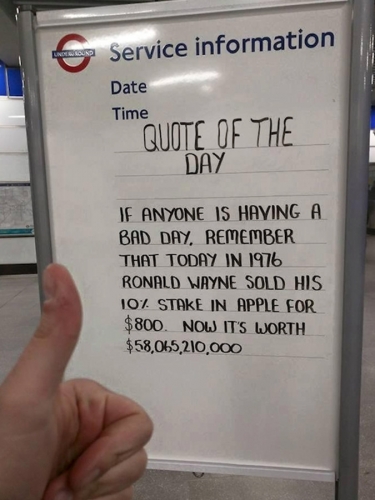 UNDERGROUND
Service information
Date
Time
QUOTE OF THE
DAY
IF ANYONE IS HAVING A
BAD DAY, REMEMBER
THAT TODAY IN 1976
RONALD WAYNE SOLD HIS
10% STAKE IN APPLE FOR
$800. NOW IT'S WORTH
$58,065,210,000